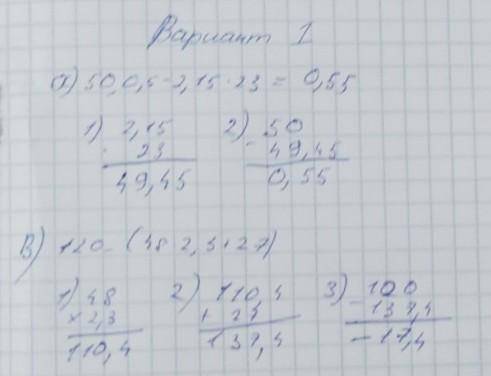 Вариант 1
а) 50,0,5-2,15·23 = 0,55
1) 2,15 2) 50
· 23 - 49,45
49,45 0,55
В) 120-(48 2,3+27)
1) 48 2) 110,4 3) 100
× 2,3 + 27 - 137,4
110,4 137,4 -17,4